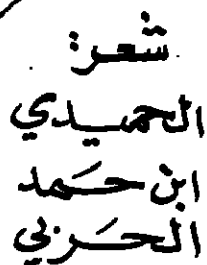 شعر:
الحميدي
ابن حمد
الحربي